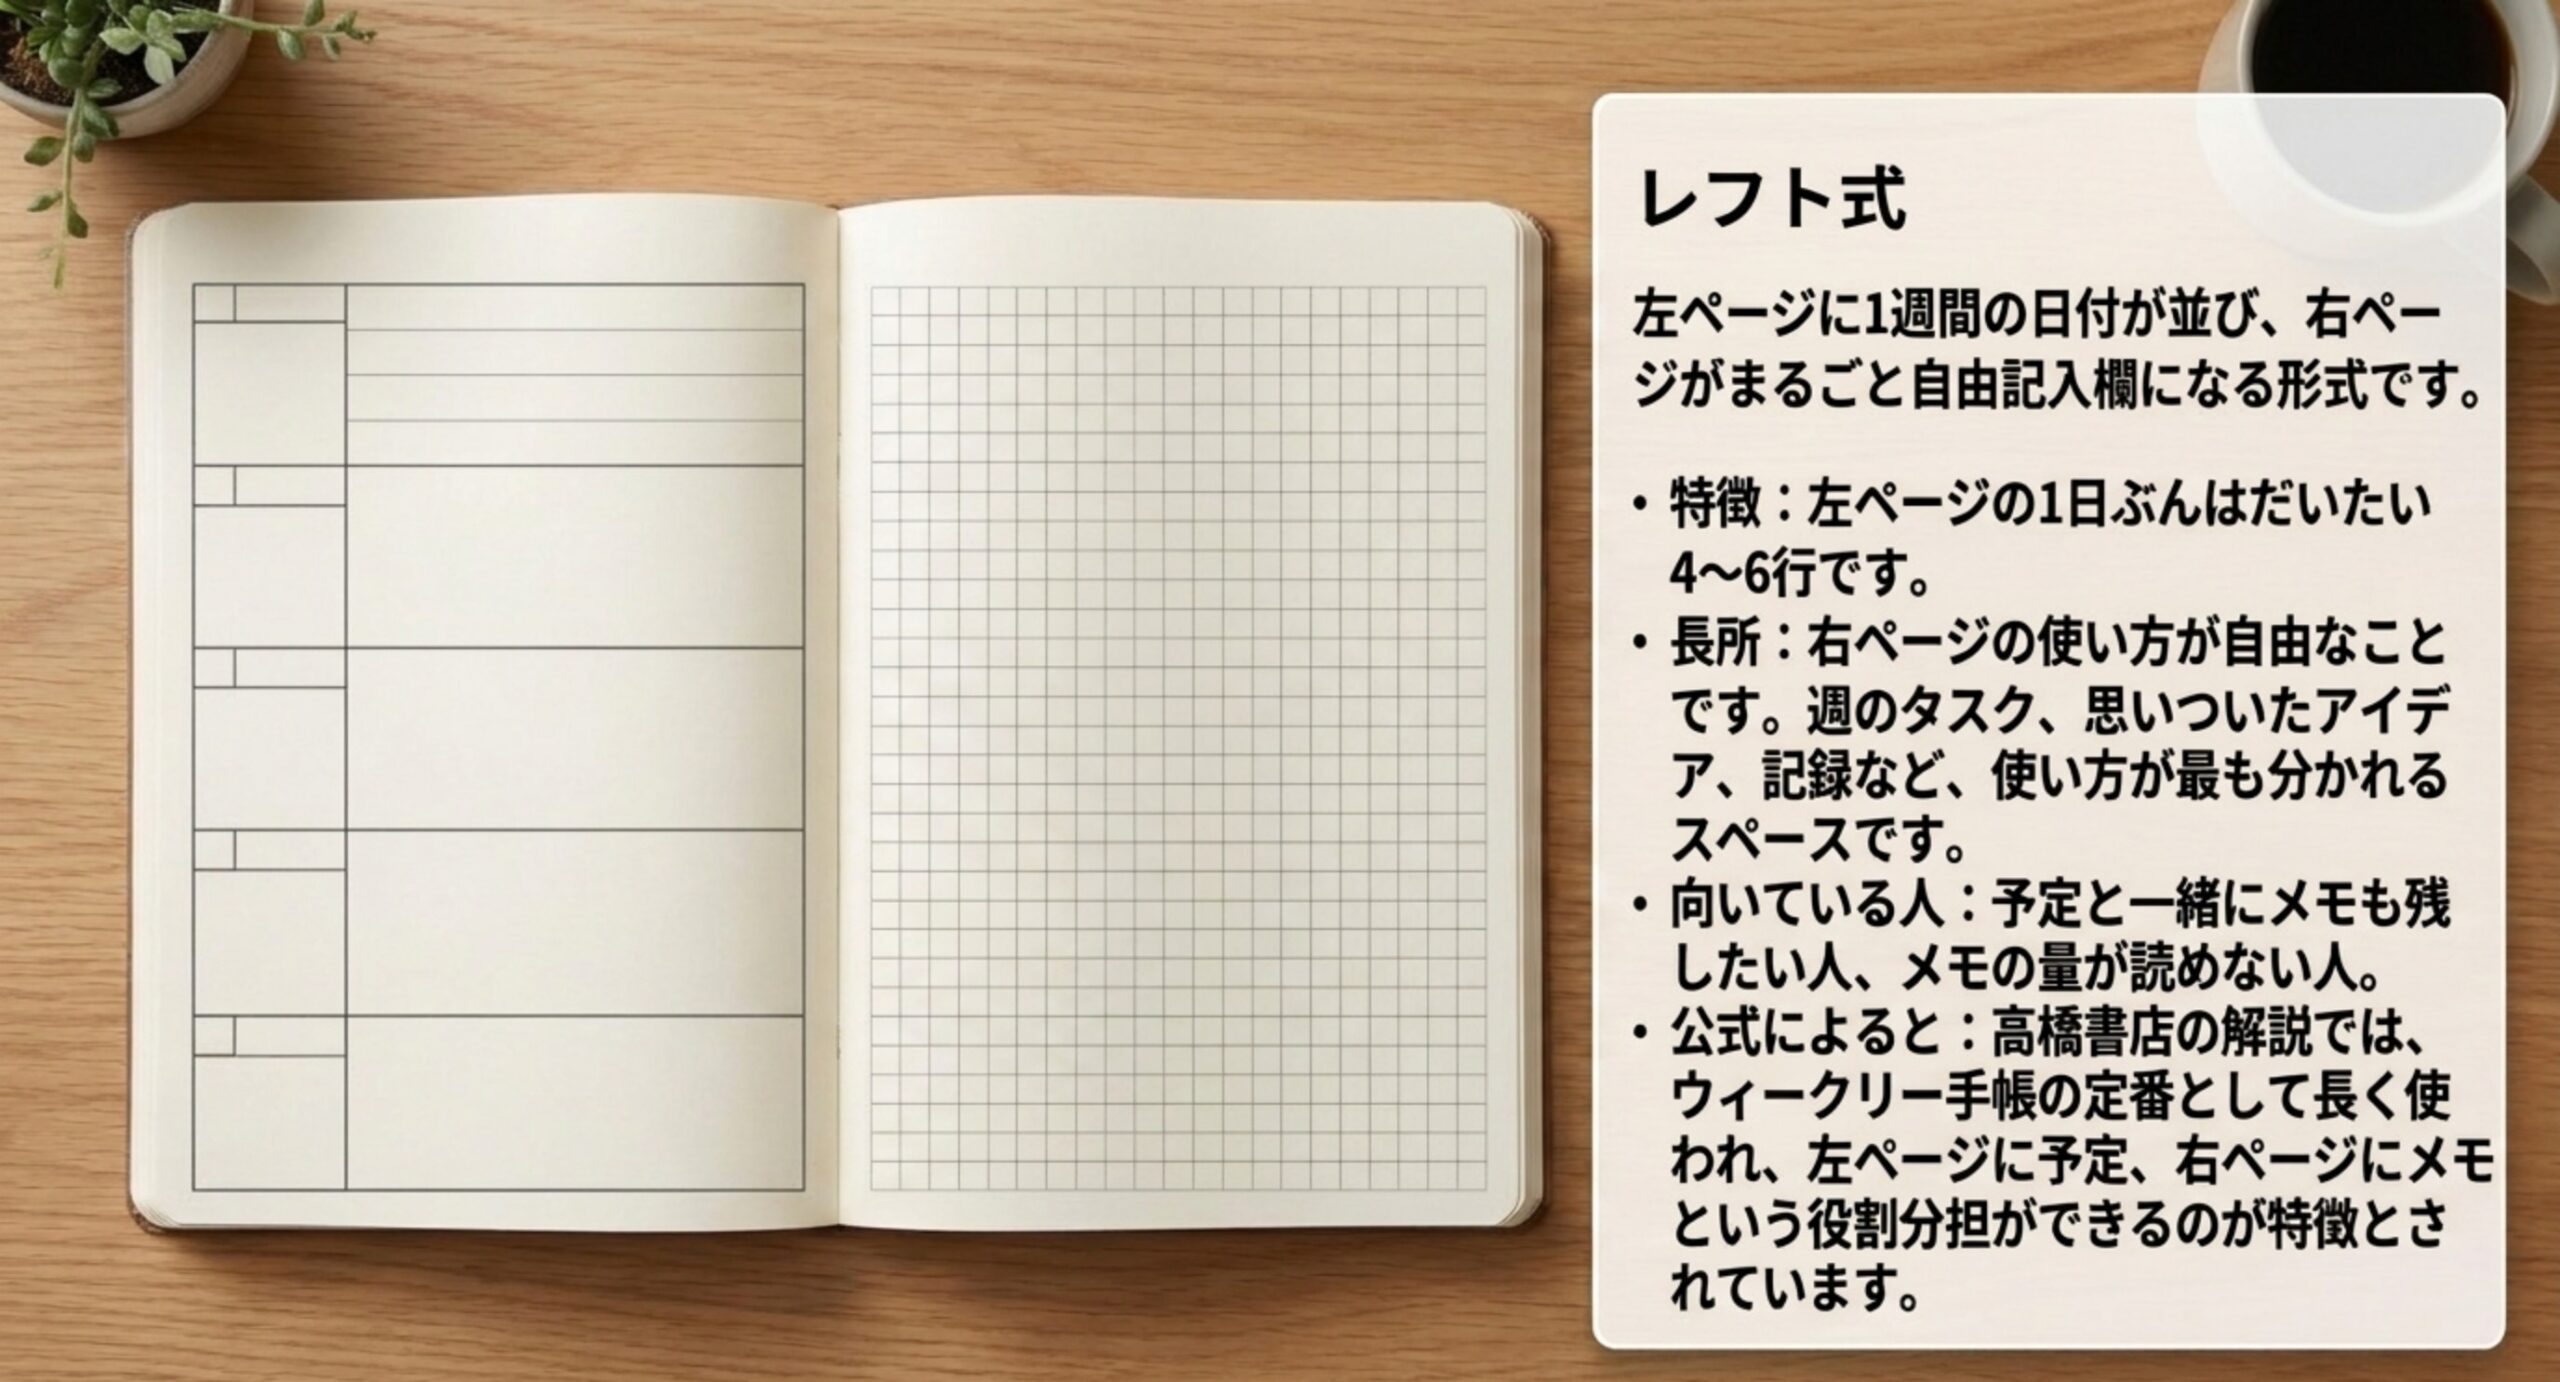 レフト式
左ページに1週間の日付が並び、右ペー
ジがまるごと自由記入欄になる形式です。
• 特徴：左ページの1日ぶんはだいたい
4〜6行です。
• 長所：右ページの使い方が自由なこと
です。週のタスク、思いついたアイデ
ア、記録など、使い方が最も分かれる
スペースです。
• 向いている人：予定と一緒にメモも残
したい人、メモの量が読めない人。
• 公式によると：高橋書店の解説では、
ウィークリー手帳の定番として長く使
われ、左ページに予定、右ページにメモ
という役割分担ができるのが特徴とさ
れています。